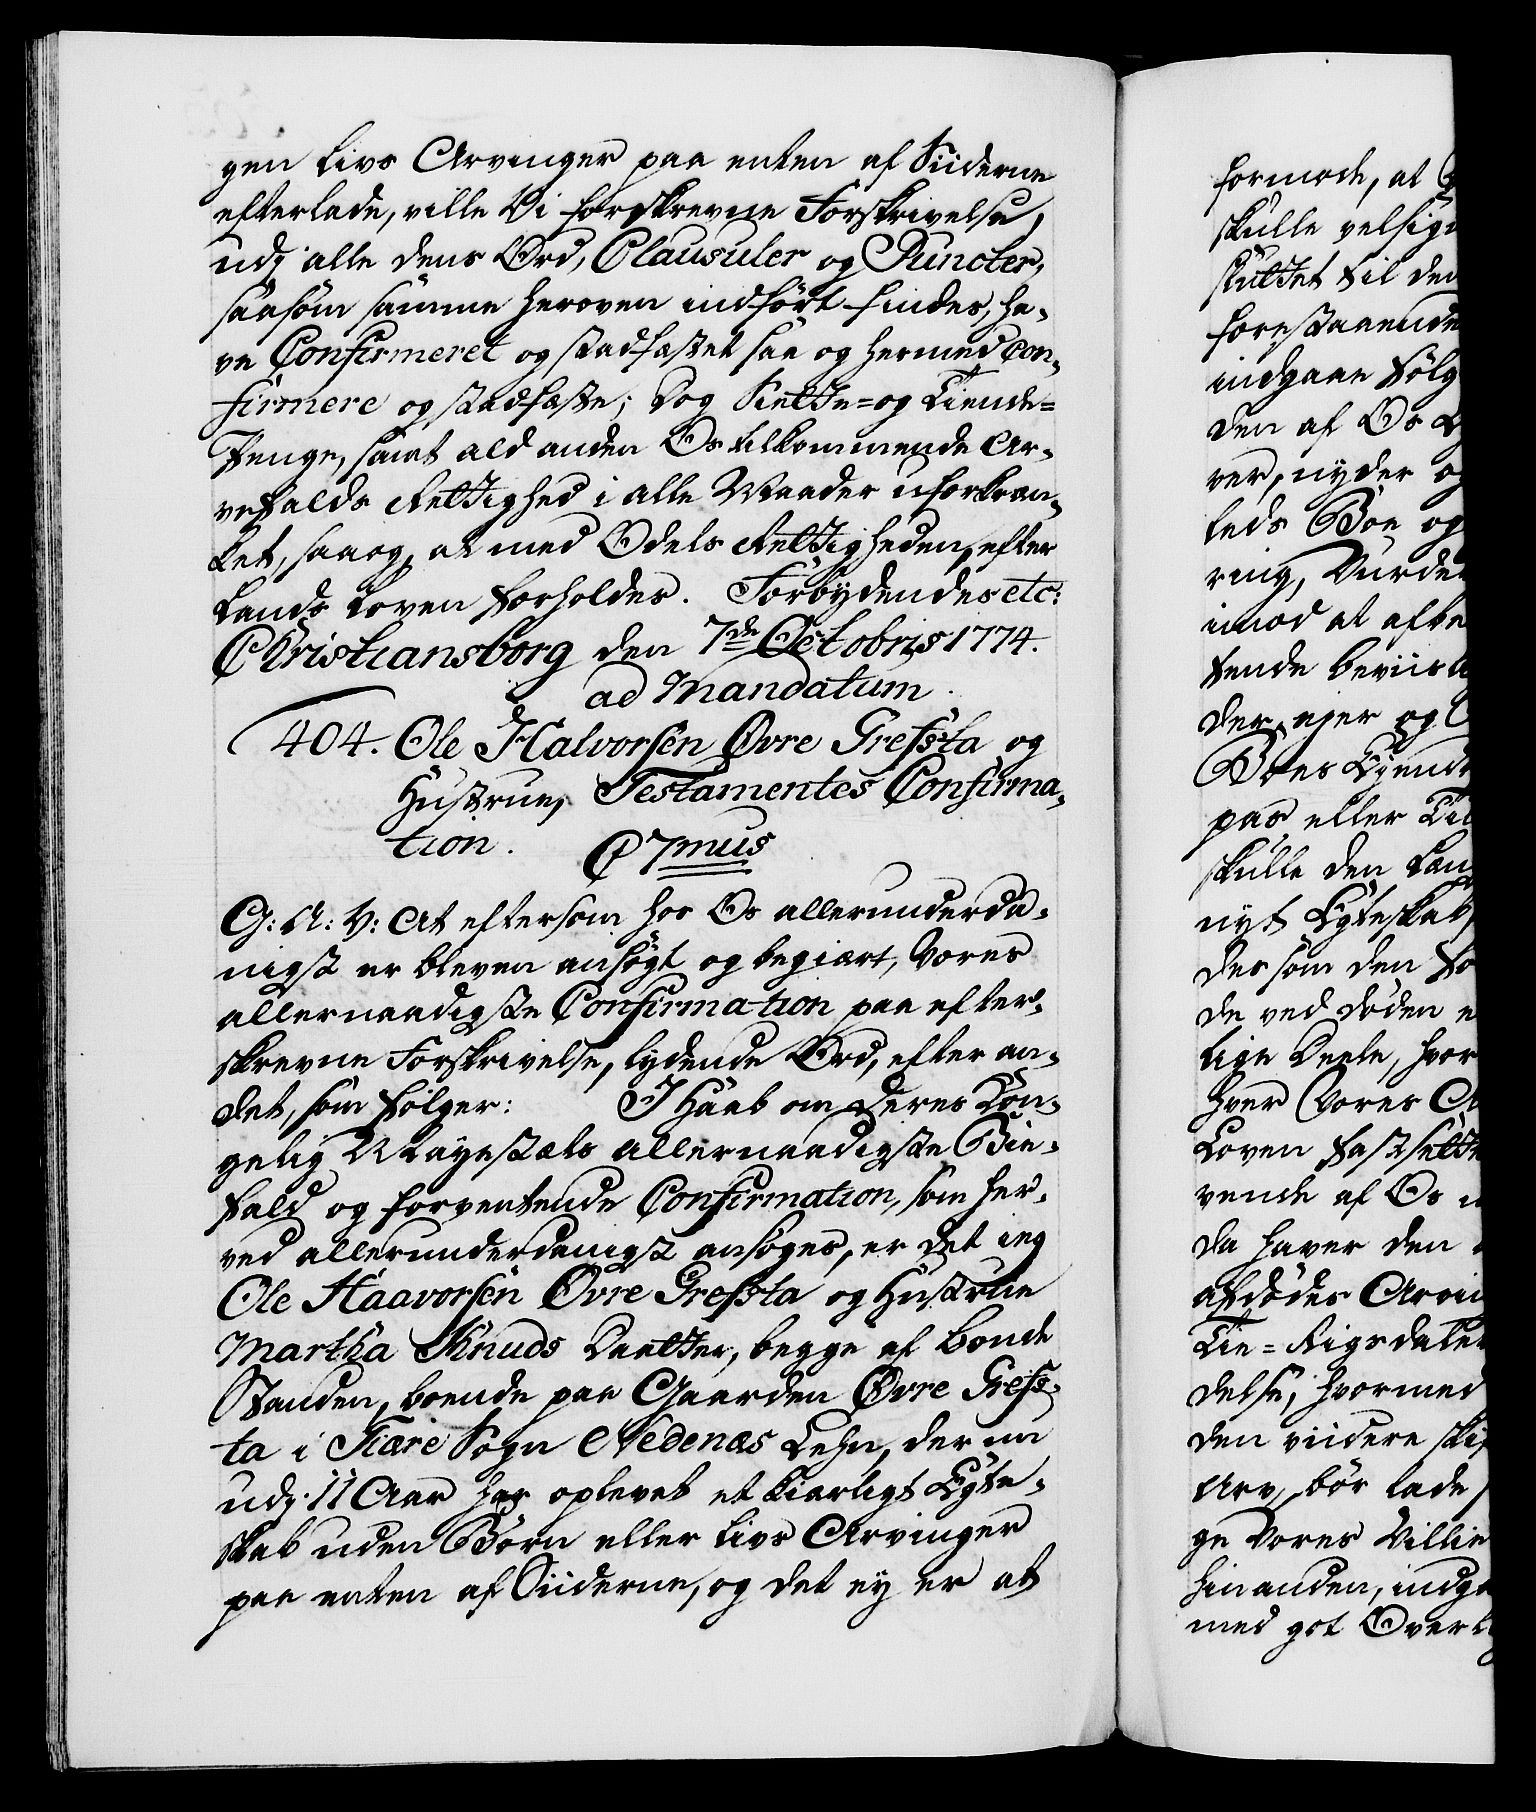 gen Livs Arvinger paa enten af Siiderne
efterlade, ville Vi forskrevne Forskrivelse,
udj alle dens Ord, Clausuler og Puncter,
saasom samme heroven indført findes, ha-
ve Confirmeret og stadfæstet saa og hermed Con-
firmere og stadfæste; Dog Siette= og Tiende=
Penge, samt ald anden Os tilkommende Ar-
vefalds Rettighed i alle Maader uforkræn-
ket, saaog, at med Odels Rettigheden, efter
Lands Loven forholdes. Forbydendes etc:
Christiansborg den 7de Octobris 1774.
ad Mandatum.
404. Ole Halvorsen Øvre Gresta og
Hustrue, Testamentes Confirma-
tion. C7mus
G: A: V: At eftersom hos Os allerunderda-
nigst er bleven ansøgt og begiært, Vores
allernaadigste Confirmation paa efter-
skrevne Forskrivelse, lydende Ord, efter an-
det, som følger: I Haab om Deres Kon-
gelig Mayestæts allernaadigste Bie-
fald og forventende Confirmation, som her-
ved allerunderdanigst ansøges, er det ieg
Ole Haavorsen Øvre Gresta og Hustrue
Martha Knuds Daatter, begge af Bonde
Standen, boende paa Gaarden Øvre Gres-
ta i Fiære Sogn Nedenæs Lehn, der nu
udj 11 Aar har oplevet et kiærligt Egte-
skab uden Børn eller Livs Arvinger
paa enten af Siiderne, og det ey er at
formode, at
skulle velsign
sluttet til den
forestaaende
indgaae følg
den af Os
ver, nyder og
leds Boe og
ring, Vurder
imod at afbe
tende beviis
der, ejer og
Boes Eyend
pas eller
skulle den læn
nyt Egteskab
des som den
de ved døden
lige Deele, hvor
hver Vores
Loven fastsette
vende af Os
da haver den
afdødes Arvi
Tie= Rigsdaler
delse, hvormed
den viidere
Arv, bør lade
ge Vores Villie
hinanden, indg
med got Overl